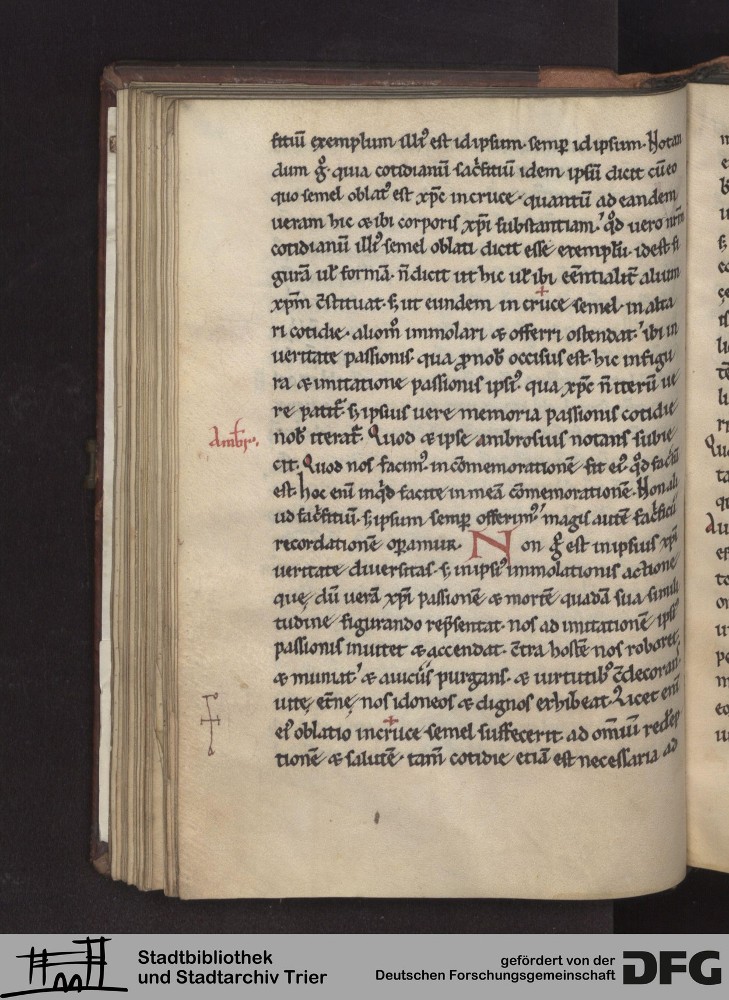 fitiū exemplum illiꝰ est id ipsum semꝑ id ipsum. Notan
dum gͦ quia cotidianū sac̄fitiū idem ipsū dicit cū eo
quo semel oblatꝰ est xp̄c in cruce. quantū ad eandem
ueram hic & ibi corporis xp̄i substantiam. qd̄ uero nr̄m
cotidianū illiꝰ semel oblati dicit esse exemplū. id est fi
gurā ul̄ formā. n̄ dicit ut hic ul̄ ibi eēntialit̄ alium
xp̄m c̄stituat. s; ut eundem in cruce semel. in alta
ri cotidie. aliom̄ immolari & offerri ostendat. ibi in
ueritate passionis. qua ꝓ nob̄ occisus est. hic in figu
ra & imitatione passionis ipsiꝰ. qua xp̄c n̄ iterū ue
re patit̄. s; ipsius uere memoria passionis cotidie
Ambr̄.
nob̄ iterat̄. Quod & ipse ambrosius notans subie
cit. Quod nos facimꝰ in cōmemorationē fit eiꝰ qd̄ factū
est. hoc enī inqͥd facite in meā cōmemorationē. Non ali
ud sac̄fitiū. s; ipsum semꝑ offerimꝰ. magis autē sac̄ficii
recordationē oꝑamur. Non gͦ est in ipsius xp̄i
ueritate diuersitas. s; in ipsiꝰ immolationis actione
que dū uerā xp̄i passionē & mortē quadā sua simili
tudine figurando rep̄sentat. nos ad imitationē ipsiꝰ
passionis inuitet & accendat. c̄tra hostē nos roboret.
& muniat. & a uiciis purgans. & uirtutibꝰ c̄decorans.
uite et̄ne nos idoneos & dignos exhibeat. Licet enī
eiꝰ oblatio in cruce semel suffecerit ad om̄iū redēp
tionē & salutē. tam̄ cotidie etiā est necessaria ad
Stadtbibliothek
und Stadtarchiv Trier
gefördert von der
Deutschen Forschungsgemeinschaft
DFG